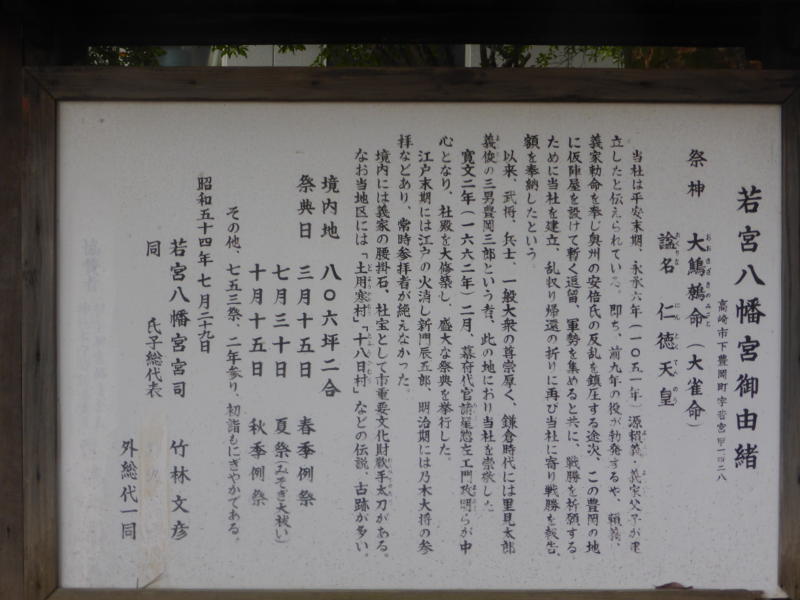 若宮八幡宮御由緒
高崎市下豊岡町字若宮甲一四二八
祭神 大鷦鷯命(大雀命)
おおさざきのみこと
諡名 仁徳天皇
おくりな にんとくてんのう
当社は平安末期、永承六年(一〇五一年)源頼義、義家父子が建
立したと伝えられている。即ち、前九年の役が勃発するや、頼義、
義家勅命を奉じ奥州の安倍氏の反乱を鎮圧する途次、この豊岡の地
に仮陣屋を設けて暫く逗留、軍勢を集めると共に、戦勝を祈願する
ために当社を建立、乱収り帰還の折りに再び当社に寄り戦勝を報告、
額を奉納したという。
以来、武将、兵士、一般大衆の尊崇厚く、鎌倉時代には里見太郎
義俊の三男豊岡三郎という者、此の地におり当社を崇敬した。
寛文二年(一六六二年)二月、幕府代官諸星惣左エ門政明らが中
心となり、社殿を大修築し、盛大な祭典を挙行した。
江戸末期には江戸の火消し新門辰五郎、明治期には乃木大将の参
拝などあり、常時参拝者が絶えなかった。
境内には義家の腰掛石、社宝として市重要文化財歌手太刀がある。
なお当地区には「土用寒村」「十八日村」などの伝説、古跡が多い。
境内地 八〇六坪二合
祭典日 三月十五日 春季例祭
七月三十日 夏祭(みそぎ大祓い)
十月十五日 秋季例祭
その他、七五三祭、二年参り、初詣もにぎやかである。
昭和五十四年七月二十九日
若宮八幡宮宮司 竹林文彦
同 氏子総代表
外総代一同